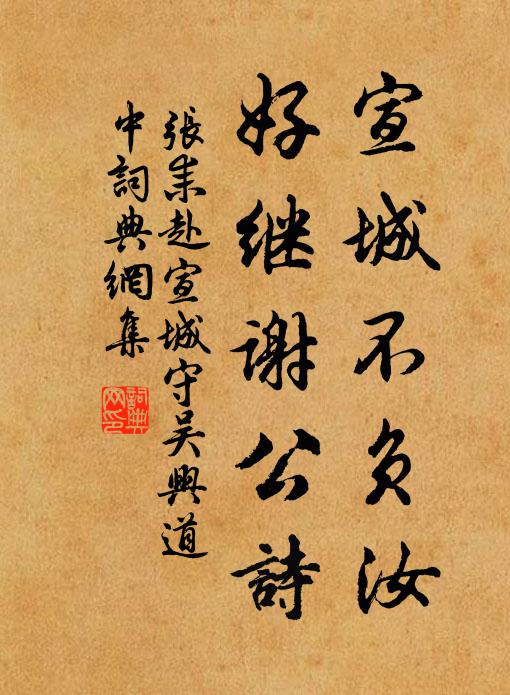 宣城不负汝
好继谢公詩
張耒赴宣城守吴興道
中詞典網集
詞典網印